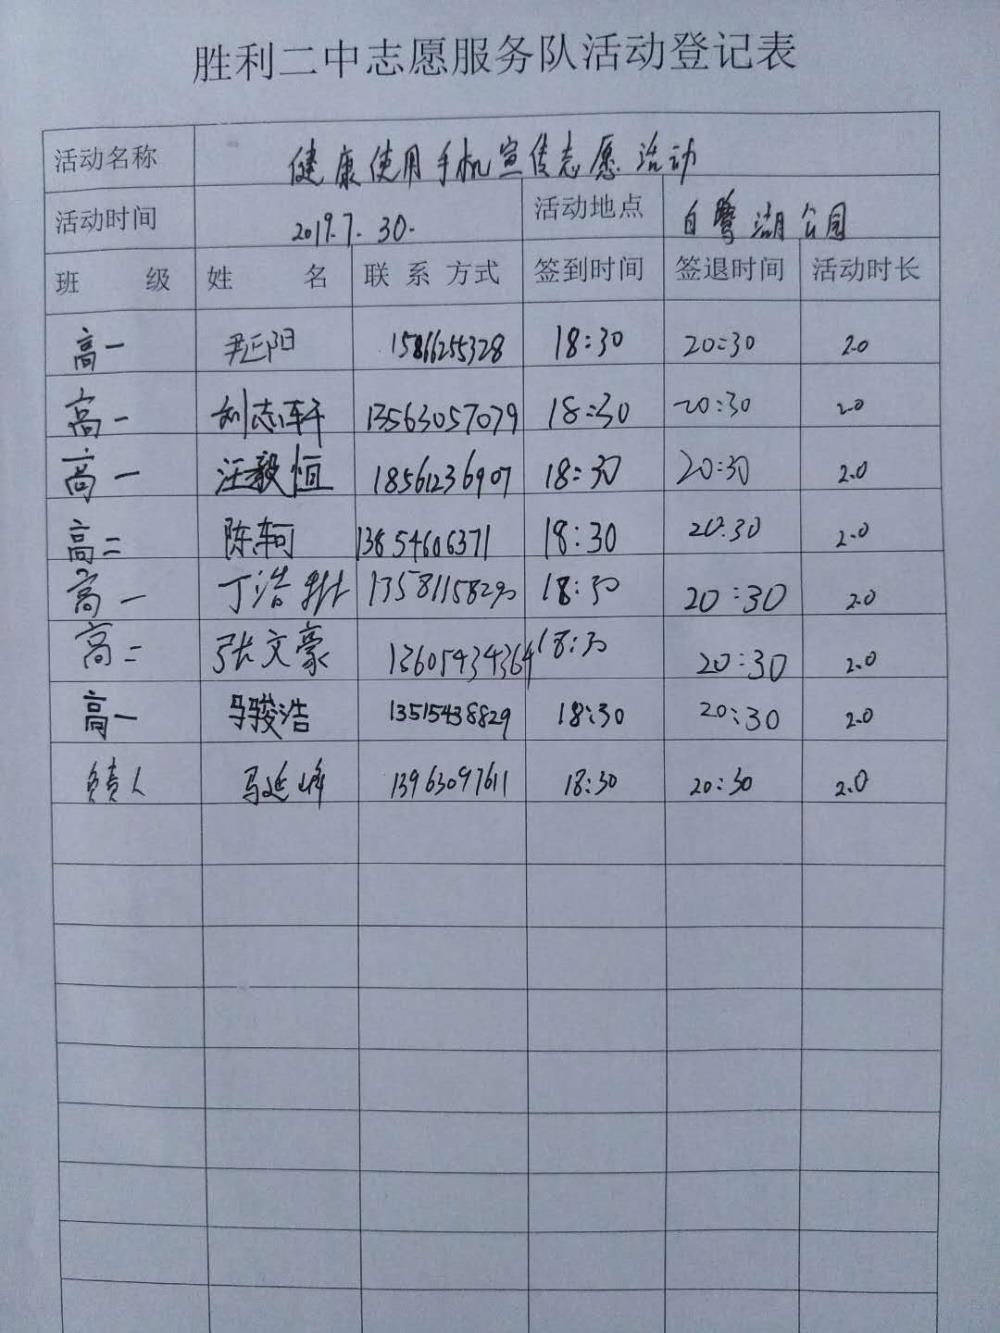 胜利二中志愿服务队活动登记表
活动名称 健康使用手机宣传志愿活动
活动时间 2019.7.30. 活动地点 白鹭湖公园
班级 姓名 联系方式 签到时间 签退时间 活动时长
高一 尹延阳 15866255328 18:30 20:30 2.0
高一 刘志轩 13563057079 18:30 20:30 2.0
高一 汪毅恒 18561236907 18:30 20:30 2.0
高二 陈轲 13854606371 18:30 20:30 2.0
高一 丁浩 13581158290 18:30 20:30 2.0
高二 张文豪 13605434364 18:30 20:30 2.0
高一 马骏浩 13515438829 18:30 20:30 2.0
负责人 马延峰 13963097611 18:30 20:30 2.0